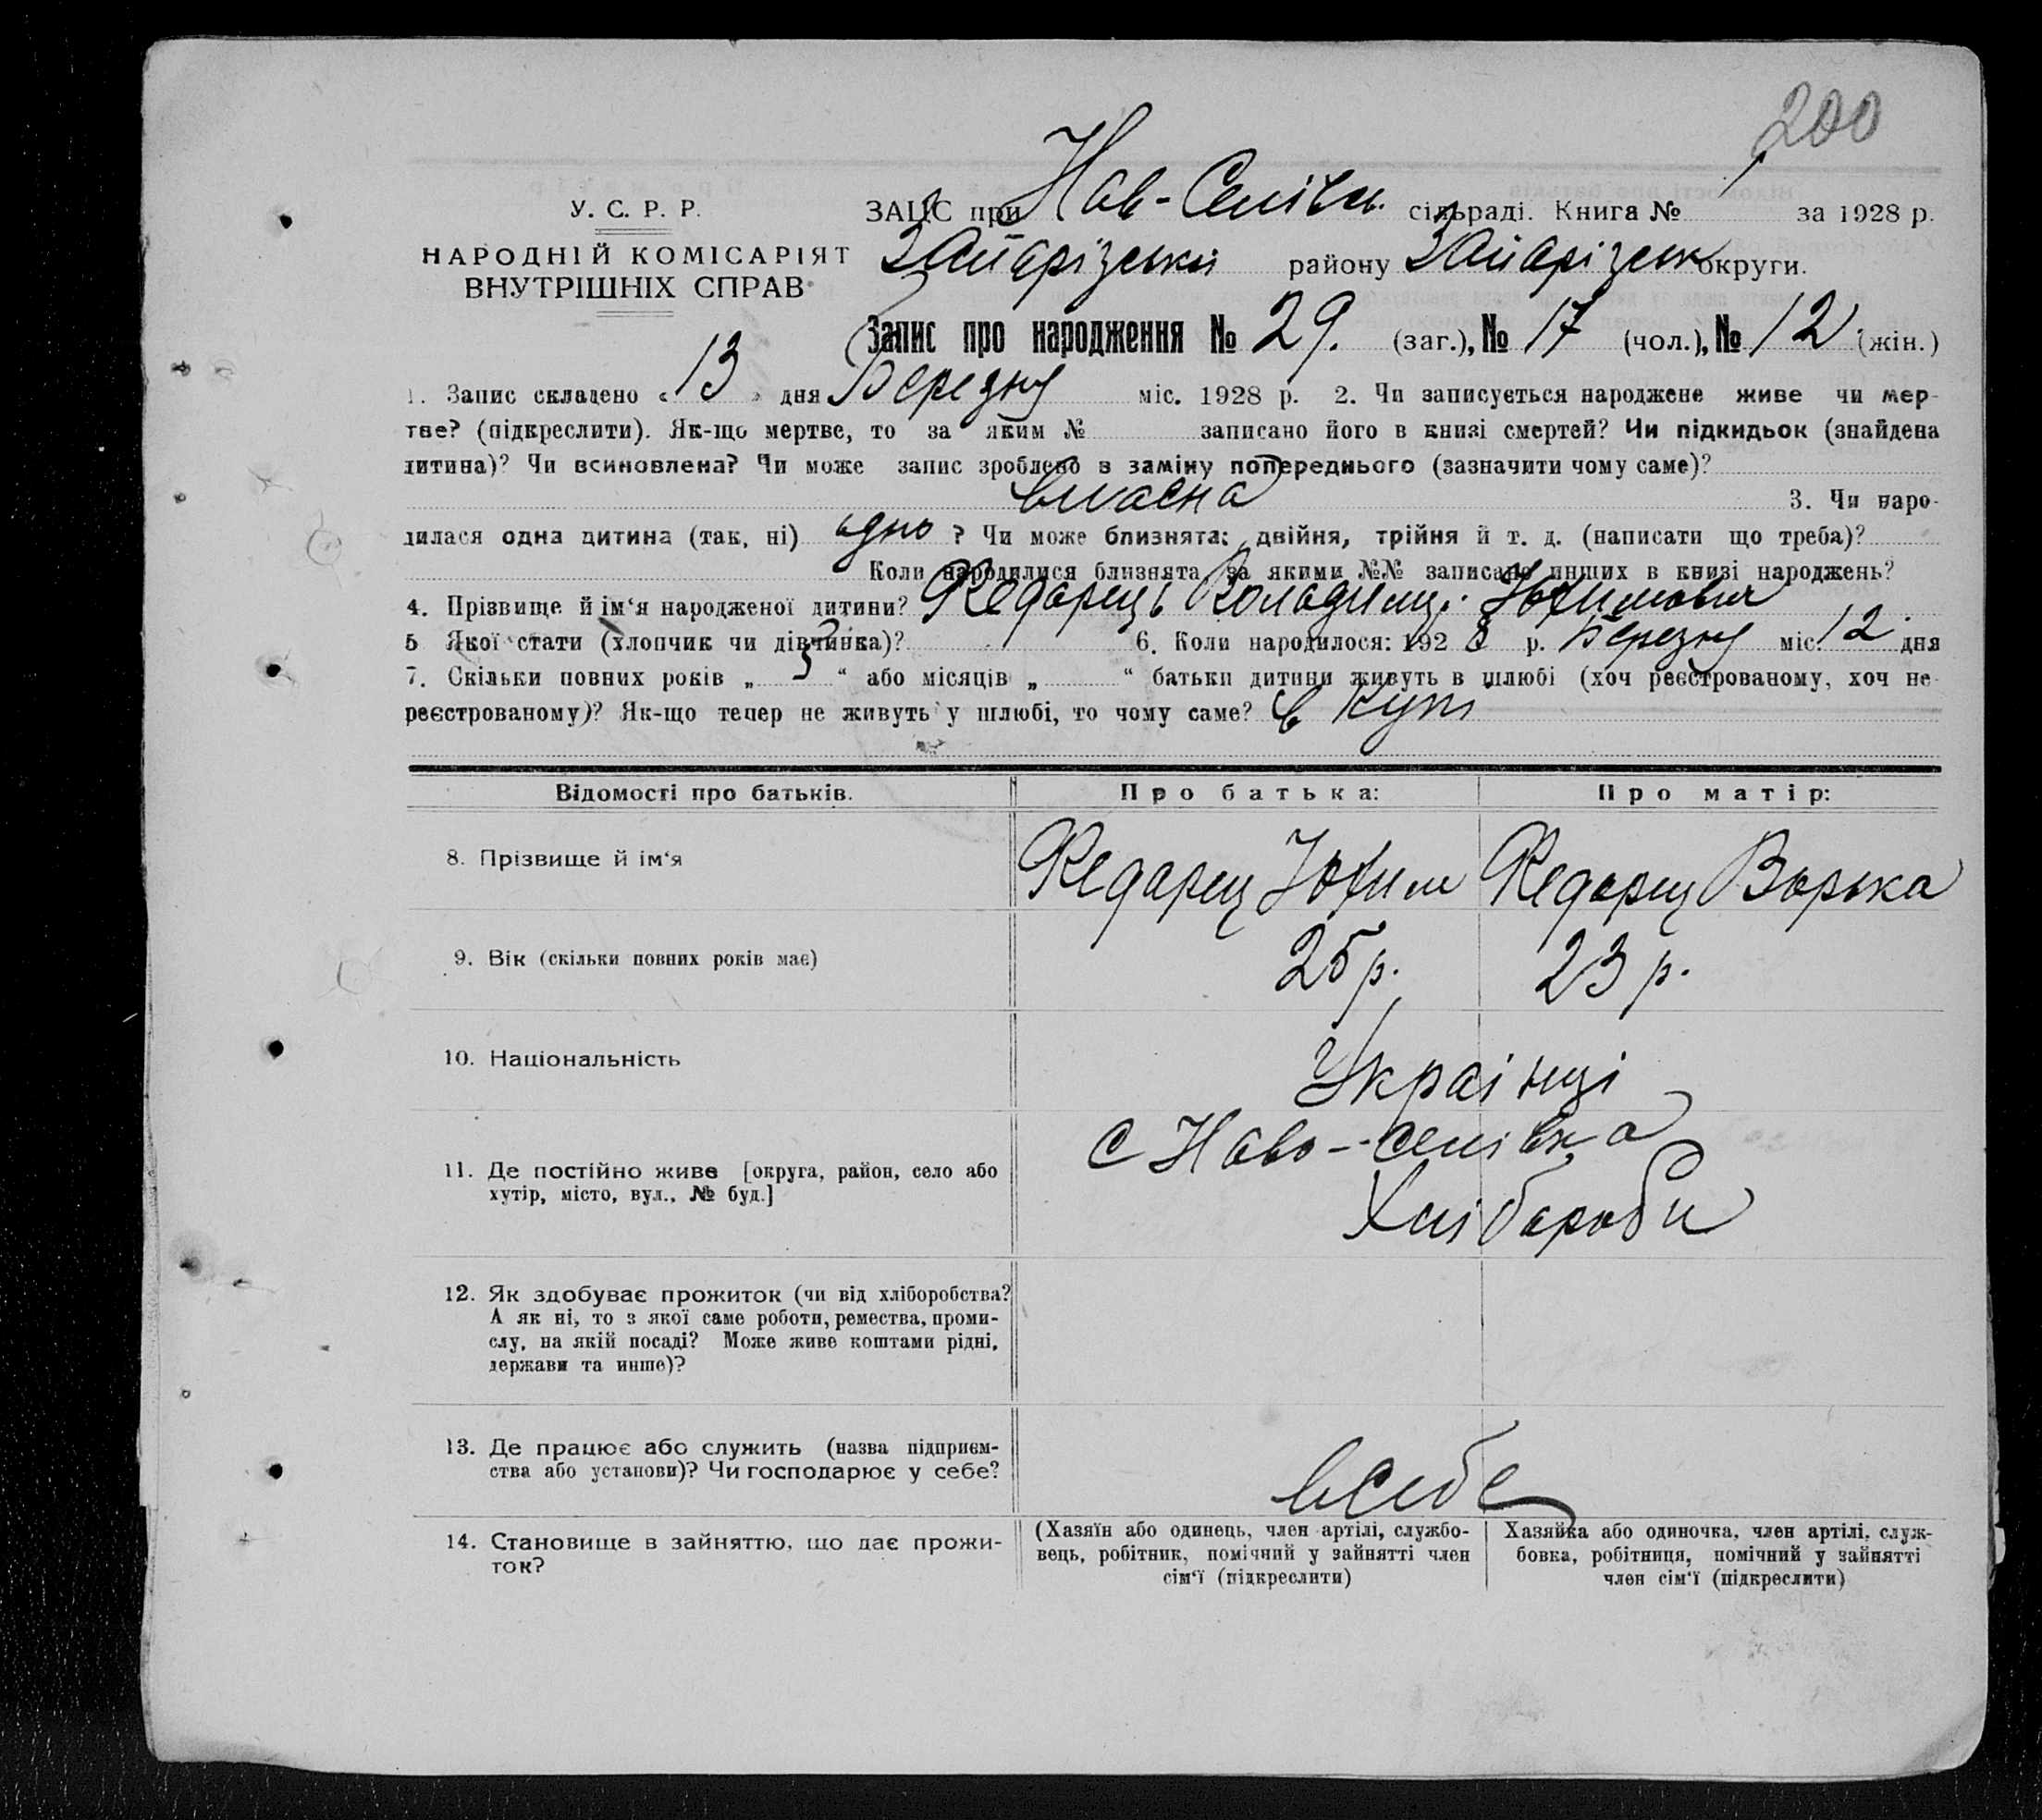 200
У. С. Р. Р.
НАРОДНІЙ КОМІСАРІЯТ
ВНУТРІШНІХ СПРАВ
ЗАЦС при Нов-Селівск. сільраді. Книга № 1 за 1928 р.
Запарізський району Запарізськ округи.
Запис про народження № 29. (заг.), № 17 (чол.), № 12 (жін.)
1. Запис складено « 13 » дня Березня міс. 1928 р. 2. Чи записується народжене живе чи мер-
тве? (підкреслити). Як-що мертве, то за яким № записано його в книзі смертей? Чи підкидьок (знайдена
дитина)? Чи всиновлена? Чи може запис зроблено в заміну попереднього (зазначити чому саме)?
власна 3. Чи наро-
дилася одна дитина (так, ні) одно ? Чи може близнята: двійня, трійня й т. д. (написати що треба)?
Коли народилися близнята, за якими №№ записано инших в книзі народжень?
4. Прізвище й ім‘я народженої дитини? Федорець Володимир Юхимович
5 Якої стати (хлопчик чи дівчинка)? 6. Коли народилося: 192 8 р. Березня міс. 12 дня
7. Скільки повних років „ 3 “ або місяців „ “ батьки дитини живуть в шлюбі (хоч реєстрованому, хоч не
реєстрованому)? Як-що тепер не живуть у шлюбі, то чому саме? в купі
Відомості про батьків.
Про батька:
Про матір:
8. Прізвище й ім‘я
Федорец Юхим
Федорец Ворька
9. Вік (скільки повних років має)
25 р.
23 р.
10. Національність
Украінці
11. Де постійно живе [округа, район, село або
хутір, місто, вул., № буд.]
с Ново-Селівка
Хлібороби
12. Як здобуває прожиток (чи від хліборобства?
А як ні, то з якої саме роботи, ремества, проми-
слу, на якій посаді? Може живе коштами рідні,
держави та инше)?
13. Де працює або служить (назва підприєм-
ства або установи)? Чи господарює у себе?
в себе
14. Становище в зайняттю, що дає прожи-
ток?
(Хазяїн або одинець, член артілі, службо-
вець, робітник, помічний у зайнятті член
сім‘ї (підкреслити)
Хазяйка або одиночка, член артілі, служ-
бовка, робітниця, помічний у зайнятті
член сім‘ї (підкреслити)